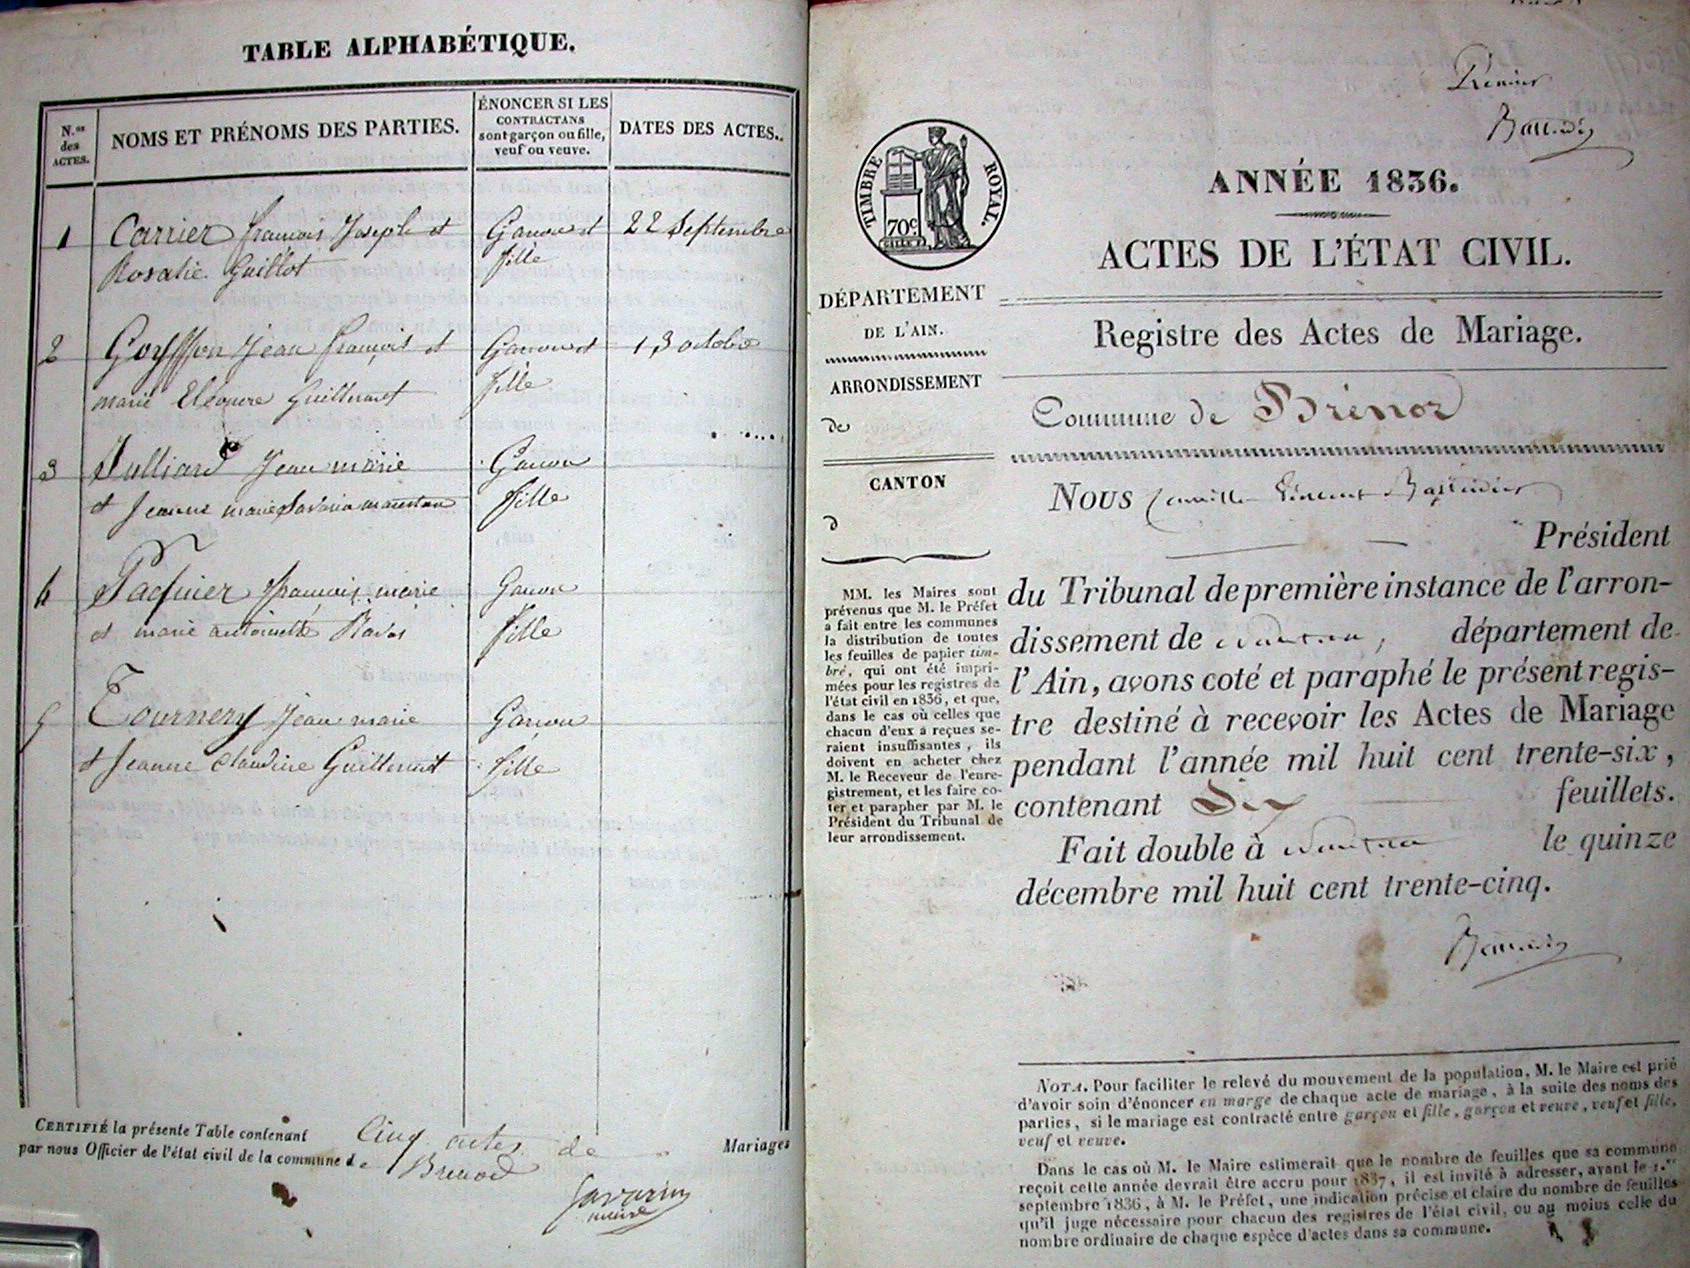 TABLE ALPHABÉTIQUE.
N.os des ACTES.
NOMS ET PRÉNOMS DES PARTIES.
ÉNONCER SI LES CONTRACTANS sont garçon ou fille, veuf ou veuve.
DATES DES ACTES.
1 Carrier françois Joseph et Garçon et 22 Septembre
Rosalie Guillot fille
2 Goyffon Jean françois et Garçon et 13 octobre
marie Eléonore Guillermet fille
3 Julliard Jean marie Garçon
et Jeanne marie Savarin fille
4 Pasquier françois marie Garçon
et marie antoinette fille
5 Tournery Jean marie Garçon
et Jeanne Claudine Guillermet fille
CERTIFIÉ la présente Table contenant Cinq actes de Mariages
par nous Officier de l'état civil de la commune de Brenod
Savarin
maire
Premier
TIMBRE ROYAL.
70c
ANNÉE 1836.
ACTES DE L'ÉTAT CIVIL.
DÉPARTEMENT
DE L'AIN.
ARRONDISSEMENT
de
CANTON
d
MM. les Maires sont
prévenus que M. le Préfet
a fait entre les communes
la distribution de toutes
les feuilles de papier tim-
bré, qui ont été impri-
mées pour les registres de
l'état civil en 1836, et que,
dans le cas où celles que
chacun d'eux a reçues se-
raient insuffisantes, ils
doivent en acheter chez
M. le Receveur de l'enre-
gistrement, et les faire co-
ter et parapher par M. le
Président du Tribunal de
leur arrondissement.
Registre des Actes de Mariage.
Commune de Brénod
NOUS Camille Vincent
Président
du Tribunal de première instance de l'arron-
dissement de Nantua, département de
l'Ain, avons coté et paraphé le présent regis-
tre destiné à recevoir les Actes de Mariage
pendant l'année mil huit cent trente-six,
contenant Six feuillets.
Fait double à Nantua le quinze
décembre mil huit cent trente-cinq.
NOTA. Pour faciliter le relevé du mouvement de la population, M. le Maire est prié
d'avoir soin d'énoncer en marge de chaque acte de mariage, à la suite des noms des
parties, si le mariage est contracté entre garçon et fille, garçon et veuve, veuf et fille,
veuf et veuve.
Dans le cas où M. le Maire estimerait que le nombre de feuilles que sa commune
reçoit cette année devrait être accru pour 1837, il est invité à adresser, avant le 1.er
septembre 1836, à M. le Préfet, une indication précise et claire du nombre de feuilles
qu'il juge nécessaire pour chacun des registres de l'état civil, ou au moins celle du
nombre ordinaire de chaque espèce d'actes dans sa commune.